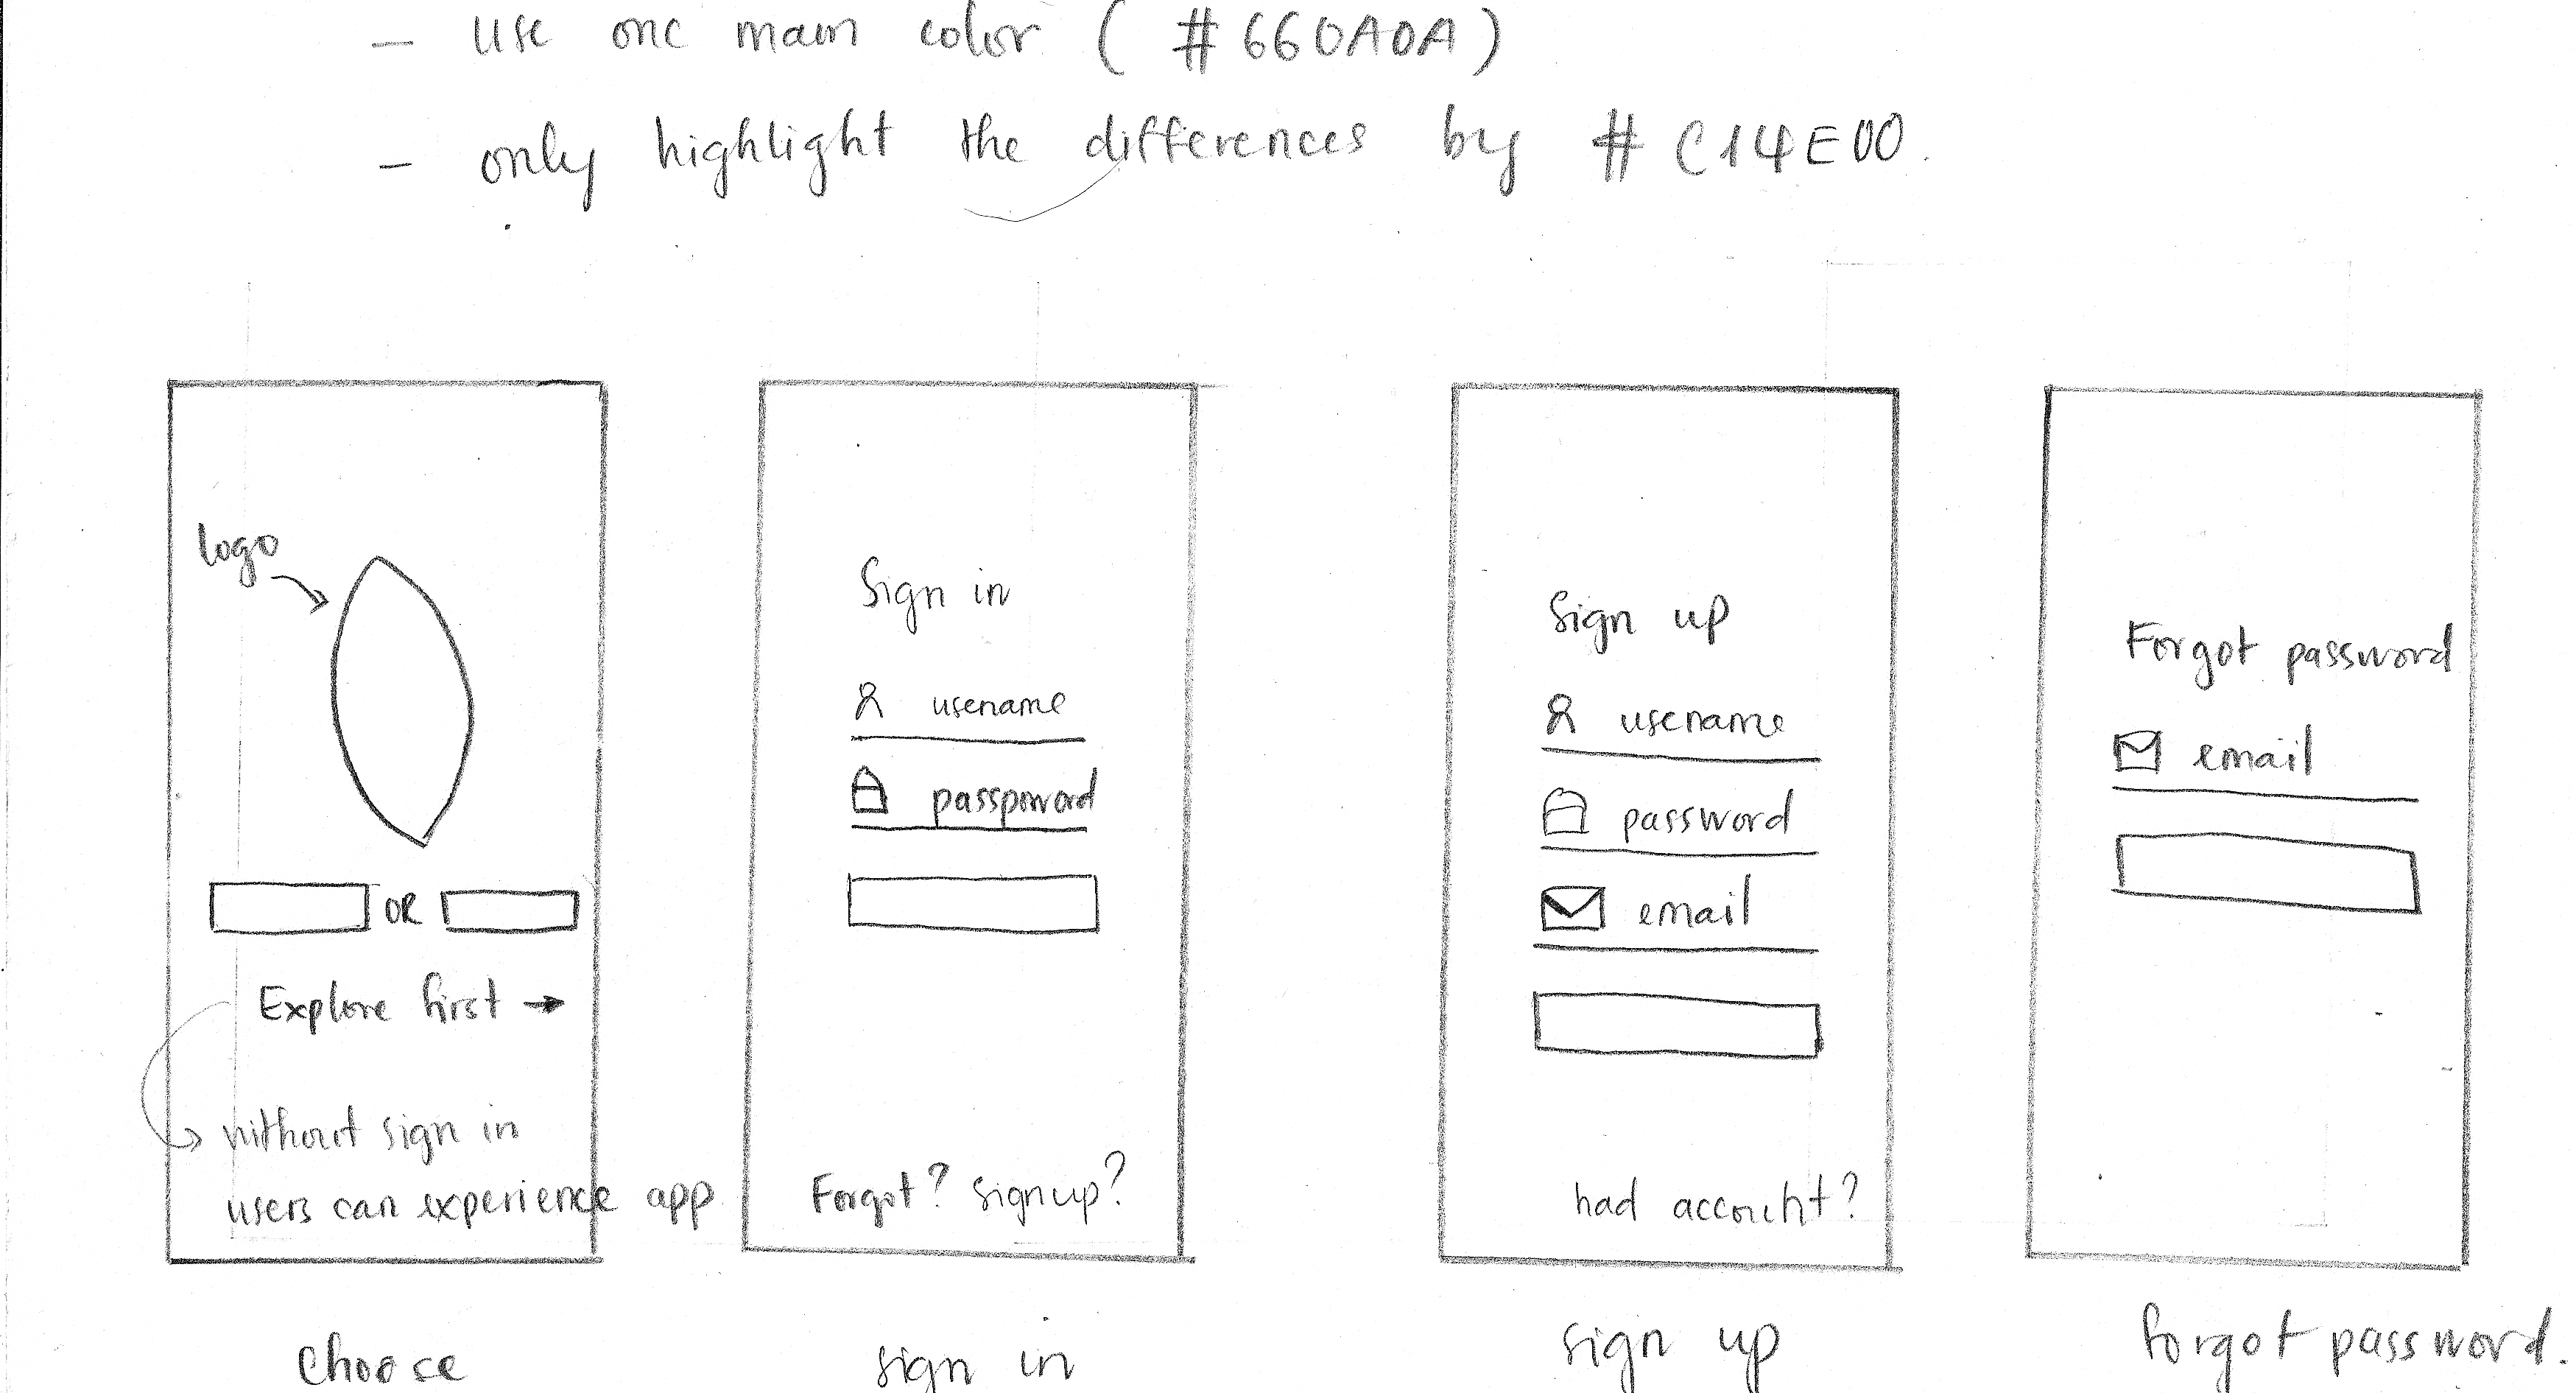 - use one main color (#660A0A)
- only highlight the differences by #C14E00.
logo
OR
Explore first →
without sign in
users can experience app
choose
Sign in
usename
passpword
Forgot? Signup?
sign in
Sign up
usename
password
email
had account?
sign up
Forgot password
email
forgot password.